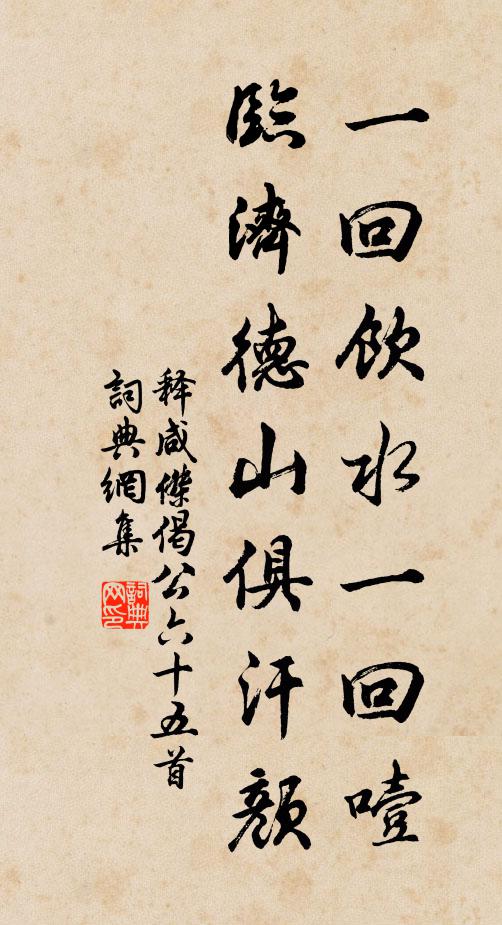 一回飲水一回噎
臨濟德山俱汗顏
釋咸傑偈公六十五首
詞典網集
詞典網印